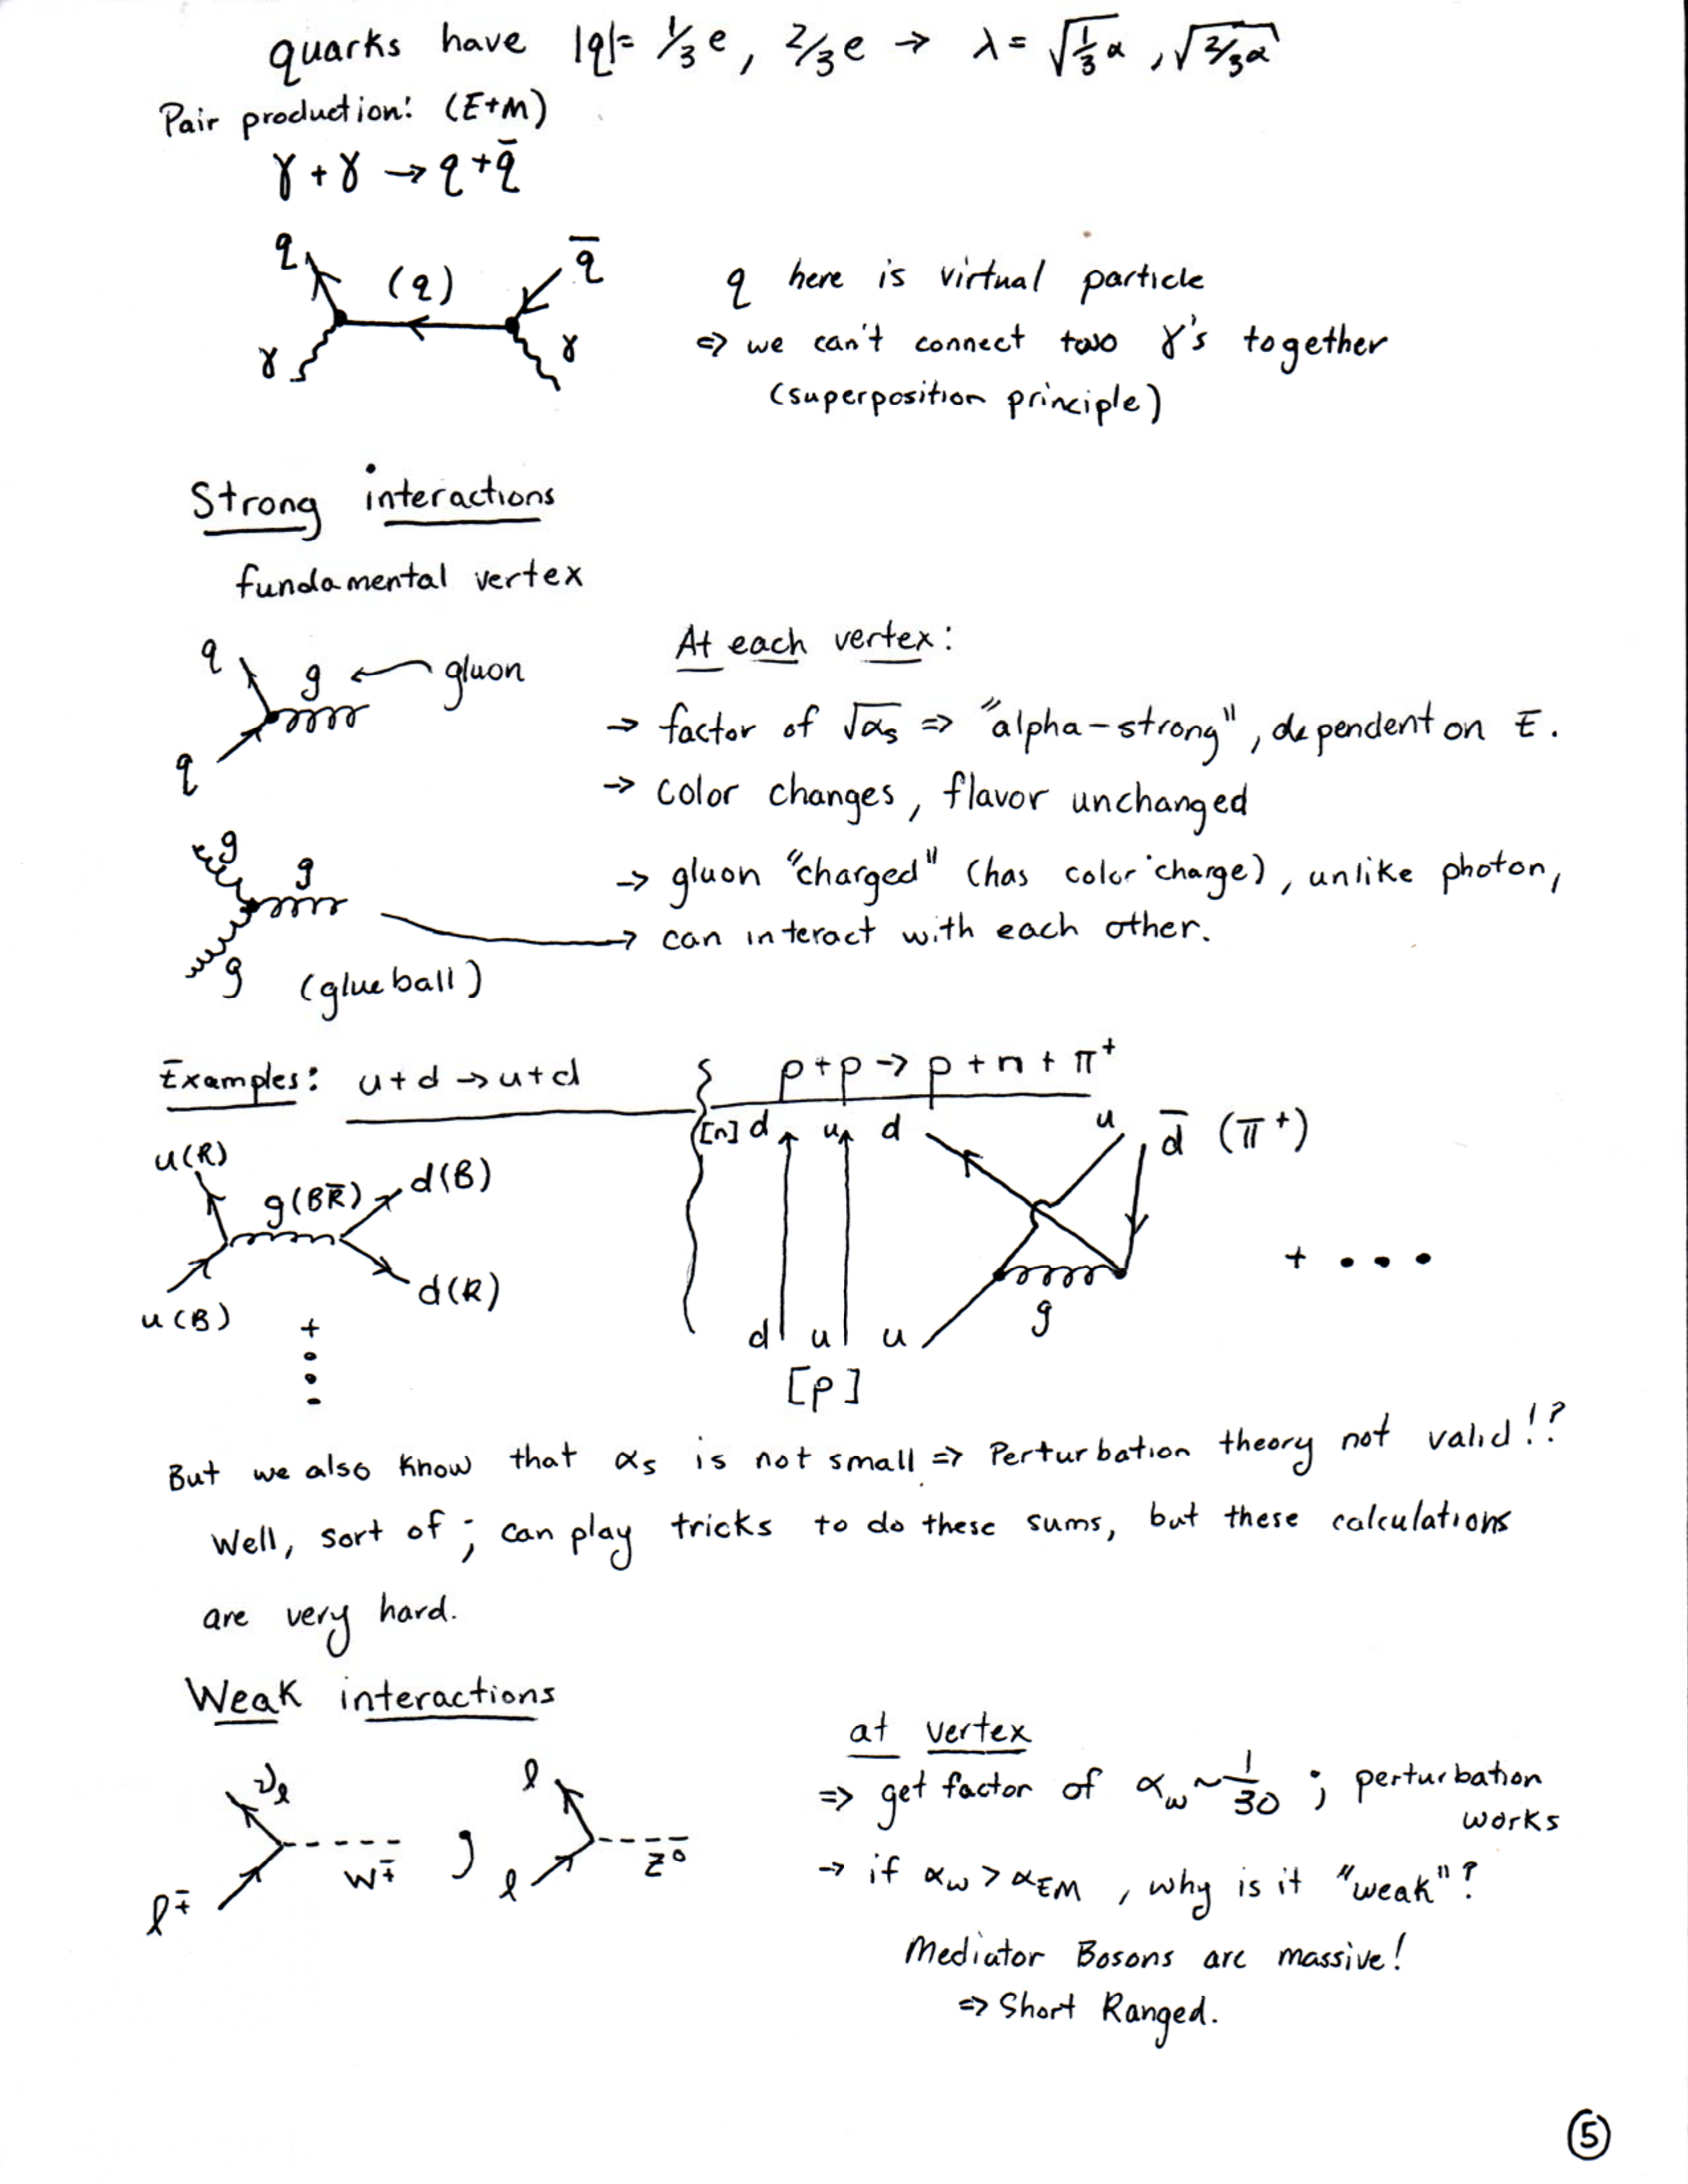 quarks have |q|= 1/3 e, 2/3 e → λ = √(1/3 α), √(2/3 α)
Pair production: (E+M)
γ + γ → q + q̄
q (q) q̄
γ γ
q here is virtual particle
⇒ we can't connect two γ's together
(superposition principle)
Strong interactions
fundamental vertex
q g ← gluon
q
At each vertex:
→ factor of √αs ⇒ "alpha-strong", dependent on E.
→ color changes, flavor unchanged
g g
g (glueball)
→ gluon "charged" (has color charge), unlike photon,
→ can interact with each other.
Examples: u + d → u + d
u(R) g(BR̄) d(B)
u(B) d(R)
+
p + p → p + n + π⁺
[n] d u d u d̄ (π⁺)
g
d u u
[p]
+ • • •
But we also know that αs is not small ⇒ Perturbation theory not valid!?
Well, sort of; can play tricks to do these sums, but these calculations
are very hard.
Weak interactions
νℓ
ℓ∓ W∓ ,
ℓ
ℓ Z⁰
at vertex
⇒ get factor of αw ~ 1/30 ; perturbation
works
→ if αw > αEM, why is it "weak"?
Mediator Bosons are massive!
⇒ Short Ranged.
5